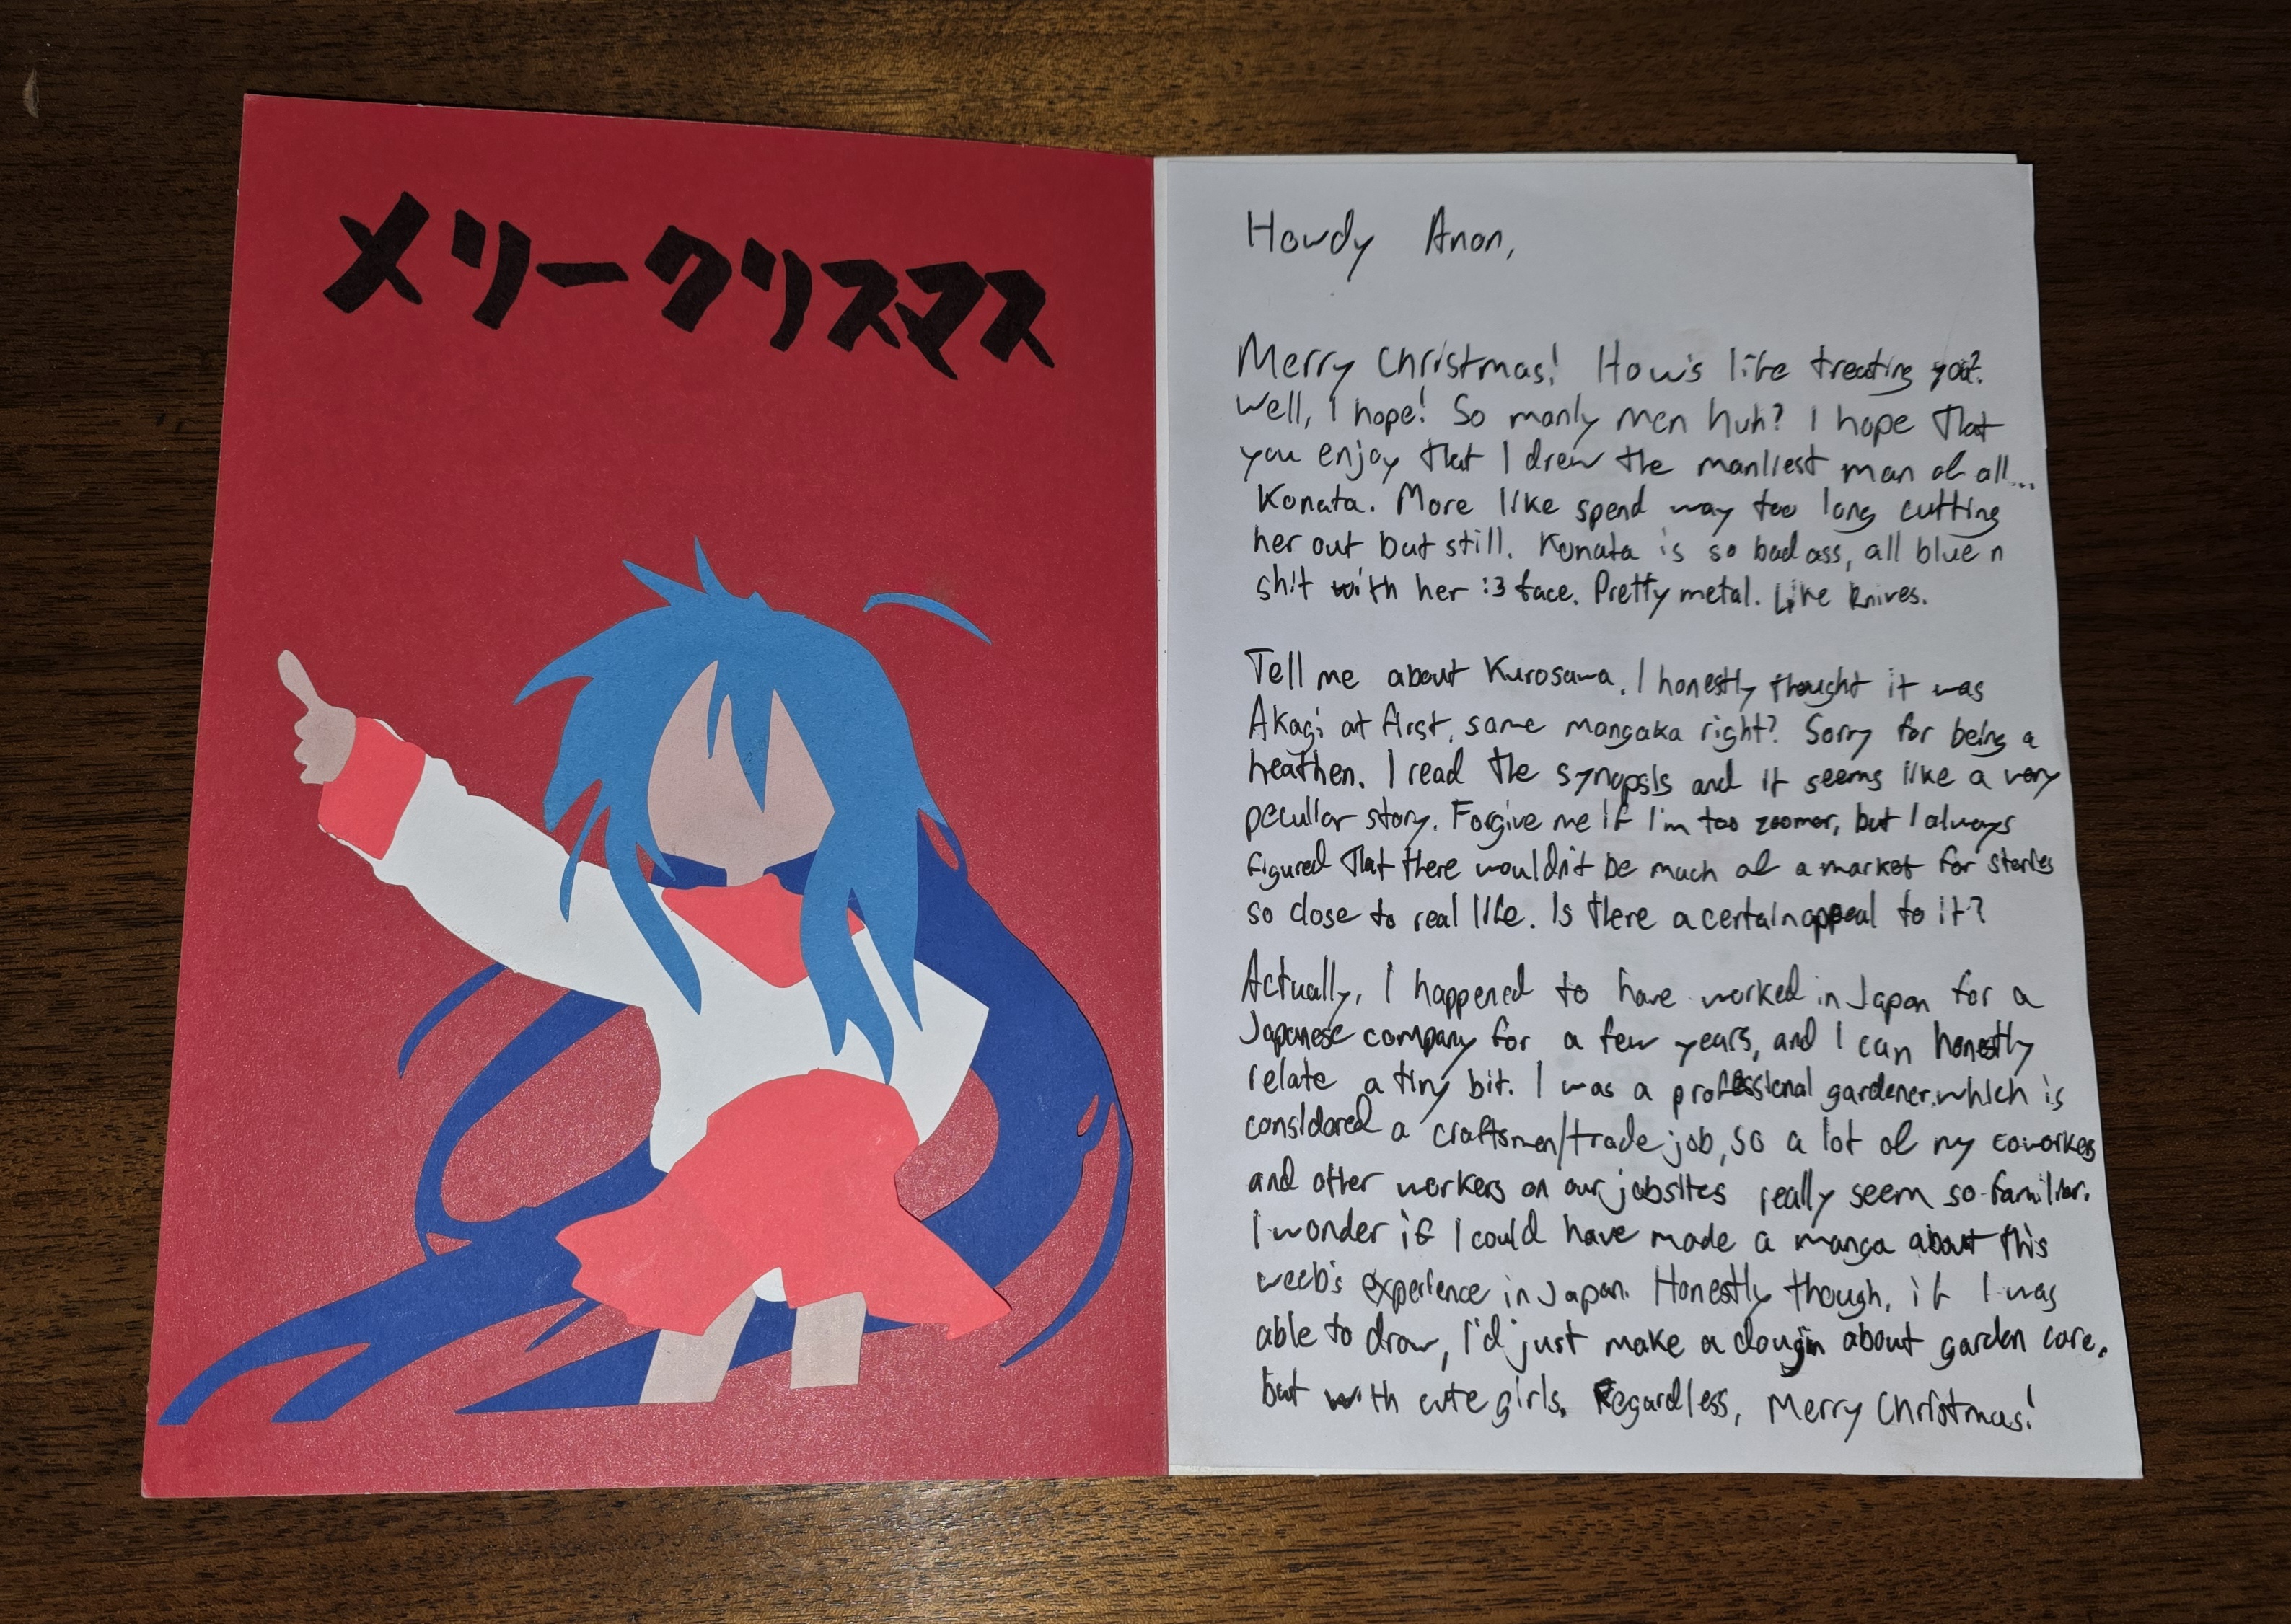 メリークリスマス
Howdy Anon,
Merry Christmas! How's life treating you?
Well, I hope! So manly men huh? I hope that
you enjoy that I drew the manliest man of all...
Konata. More like spend way too long cutting
her out but still. Konata is so badass, all blue n
shit with her :3 face. Pretty metal. Like knives.
Tell me about Kurosawa. I honestly thought it was
Akagi at first, same mangaka right? Sorry for being a
heathen. I read the synopsis and it seems like a very
peculiar story. Forgive me if I'm too zoomer, but I always
figured that there wouldn't be much of a market for stories
so close to real life. Is there a certain appeal to it?
Actually, I happened to have worked in Japan for a
Japanese company for a few years, and I can honestly
relate a tiny bit. I was a professional gardener, which is
considered a craftsmen/trade job, so a lot of my coworkers
and other workers on our jobsites really seem so familiar.
I wonder if I could have made a manga about this
weeb's experience in Japan. Honestly though, if I was
able to draw, I'd just make a doujin about garden care,
but with cute girls. Regardless, Merry Christmas!